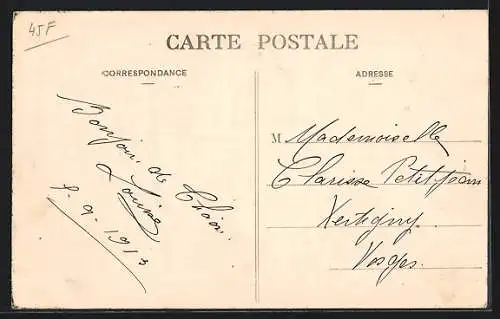 45F
CARTE POSTALE
CORRESPONDANCE
Bonjour de
Louise
9. 1913
ADRESSE
M Mademoiselle
Clarisse Petitjean
Xertigny
Vosges